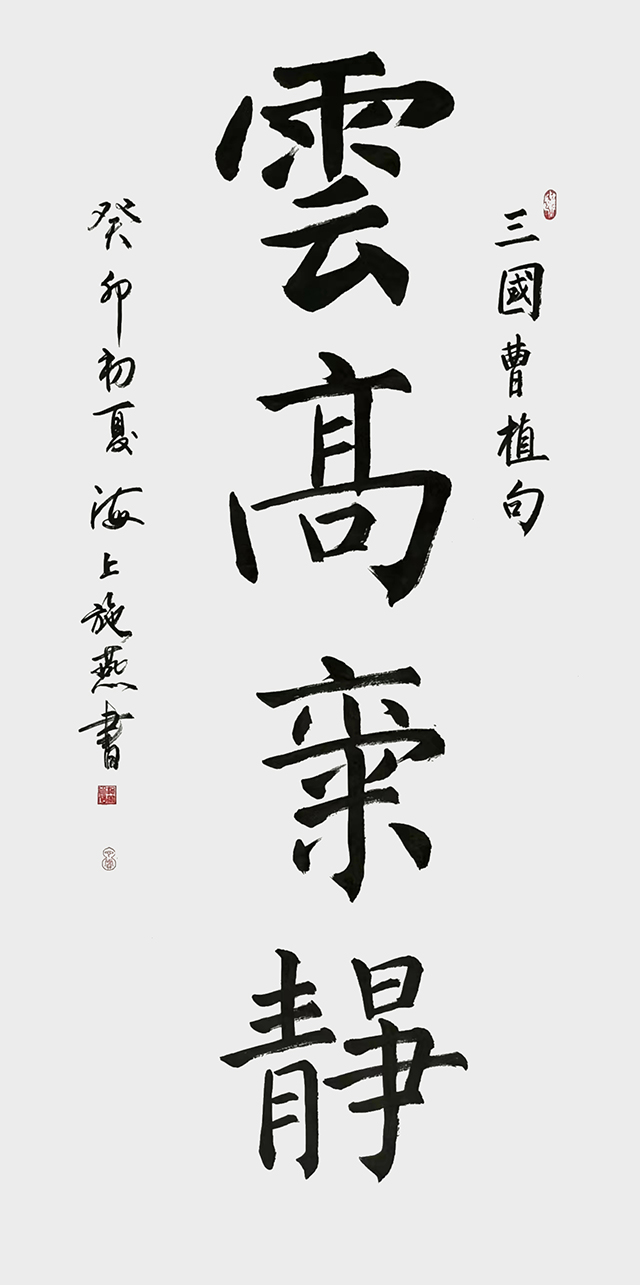 三國曹植句
雲高氣靜
癸卯初夏海上施燕書